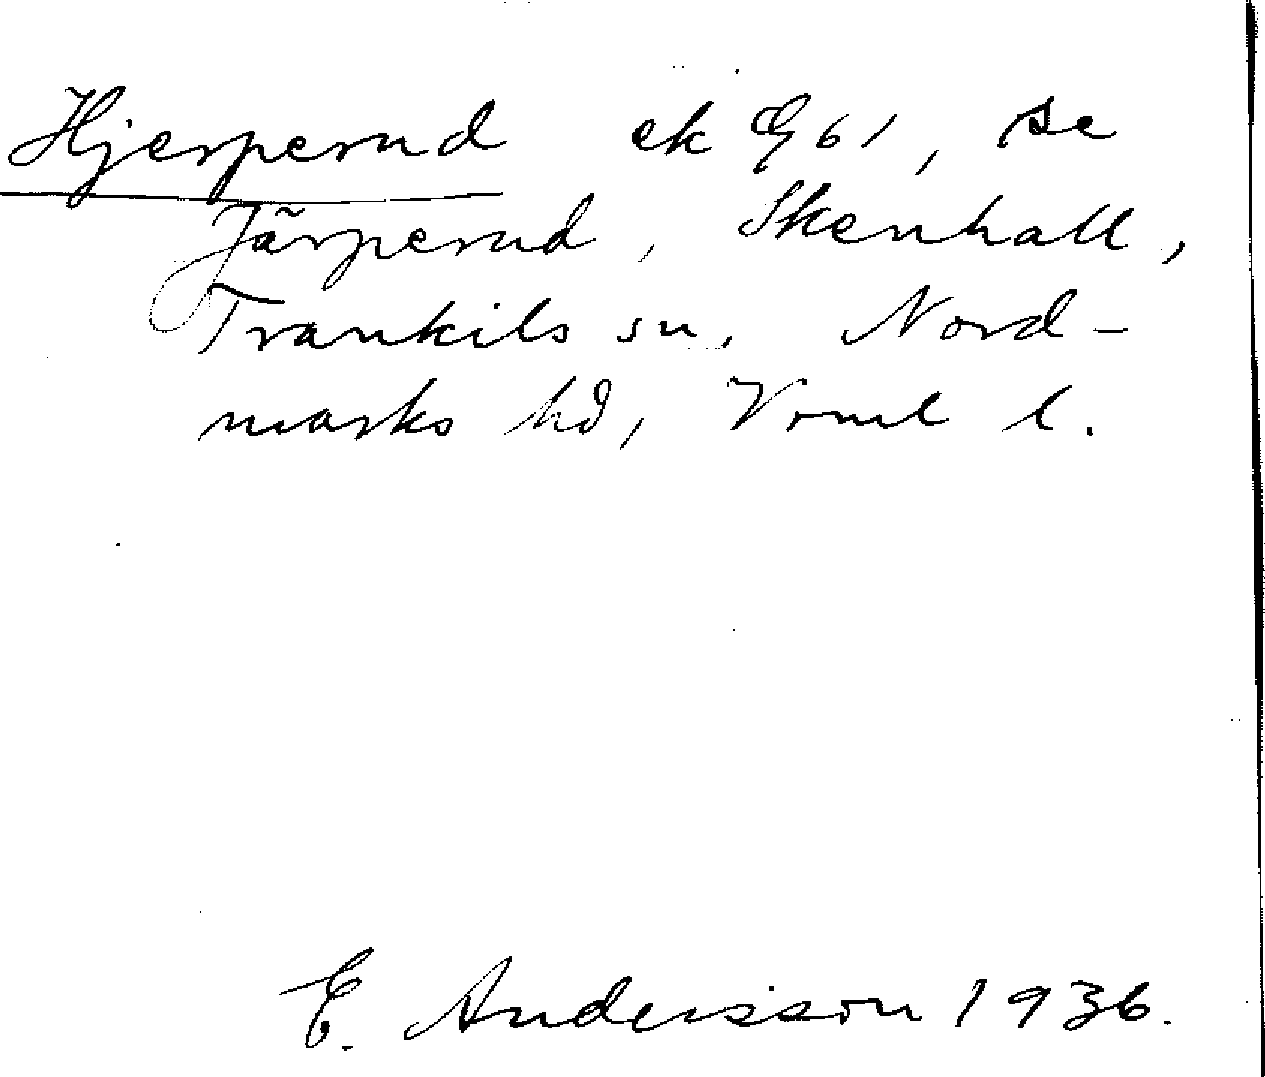 Hjerperud ek G 61, se
Järperud, Skenhall,
Trankils sn, Nord-
marks hd, Vrml l.
E. Andersson 1936.